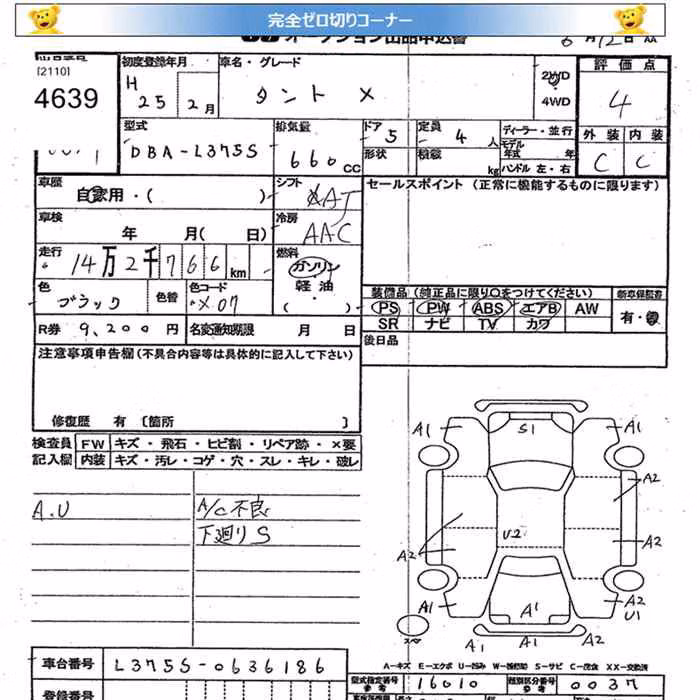 完全ゼロ切りコーナー
オークション出品申込書
6月12日
[2110]
4639
初度登録年月
H 25 2月
車名・グレード
タント X
2WD
4WD
評価点
4
外装 内装
C C
型式
DBA-L375S
排気量
660 CC
ドア 5
形状
定員 4 人
積載 kg
ディーラー・並行
モデル年式 年
ハンドル 左・右
車歴
自家用・( )
シフト
AT
セールスポイント (正常に機能するものに限ります)
車検
年 月( 日)
冷房
AAC
走行
14万2千766km
燃料
ガソリン
軽油
( )
色
ブラック
色替
色コード
X07
装備品 (純正品に限り○をつけてください)
新車保証書
PS PW ABS エアB AW
有・無
SR ナビ TV カワ
R券 9,200円
名変通知期限 月 日
後日品
注意事項申告欄(不具合内容等は具体的に記入して下さい)
修復歴 有 〔箇所 〕
検査員 FW キズ・飛石・ヒビ割・リペア跡・×要
記入欄 内装 キズ・汚レ・コゲ・穴・スレ・キレ・破レ
A.U
A/C不良
下廻りS
A1 S1 A1
A2
U2
A2 A2
A1 A1 A2
U1
スペ
A1 A1 A2
A-キズ E-エクボ U-凹み W-補修跡 S-サビ C-腐食 XX-交換済
車台番号 L375S-0636186
型式指定番号 16010
類別区分番号 0037
参考
登録番号